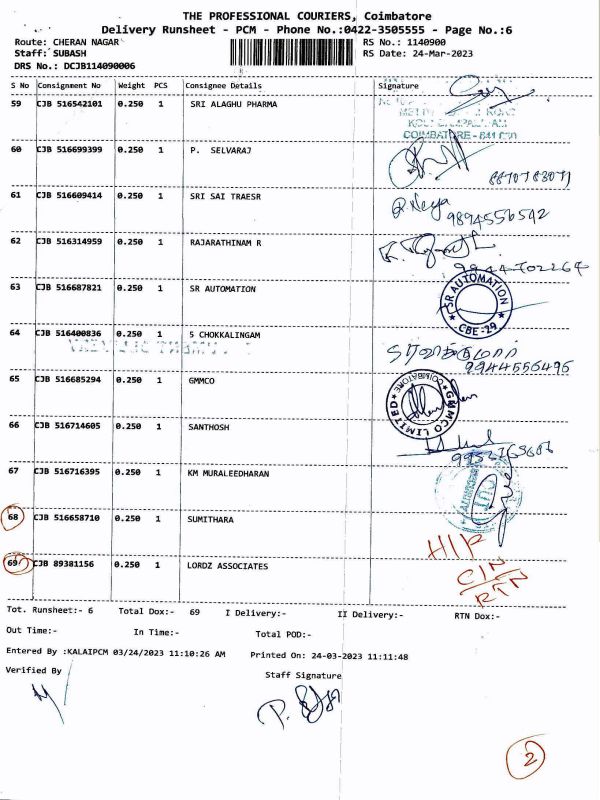 THE PROFESSIONAL COURIERS, Coimbatore
Delivery Runsheet - PCM - Phone No.:0422-3505555 - Page No.:6
Route: CHERAN NAGAR RS No.: 1140900
Staff: SUBASH RS Date: 24-Mar-2023
DRS No.: DCJB114090006
S No Consignment No Weight PCS Consignee Details Signature
59 CJB 516542101 0.250 1 SRI ALAGHU PHARMA
COIMBATORE
60 CJB 516699399 0.250 1 P. SELVARAJ
61 CJB 516609414 0.250 1 SRI SAI TRAESR
9894556542
62 CJB 516314959 0.250 1 RAJARATHINAM R
63 CJB 516687821 0.250 1 SR AUTOMATION
SR AUTOMATION CBE-29
64 CJB 516400836 0.250 1 S CHOKKALINGAM
9944556496
65 CJB 516685294 0.250 1 GMMCO
GMMCO LIMITED COIMBATORE
66 CJB 516714605 0.250 1 SANTHOSH
67 CJB 516716395 0.250 1 KM MURALEEDHARAN
68 CJB 516658710 0.250 1 SUMITHARA
69 CJB 89381156 0.250 1 LORDZ ASSOCIATES
RTN
Tot. Runsheet:- 6 Total Dox:- 69 I Delivery:- II Delivery:- RTN Dox:-
Out Time:- In Time:- Total POD:-
Entered By :KALAIPCM 03/24/2023 11:10:26 AM Printed On: 24-03-2023 11:11:48
Verified By Staff Signature
2